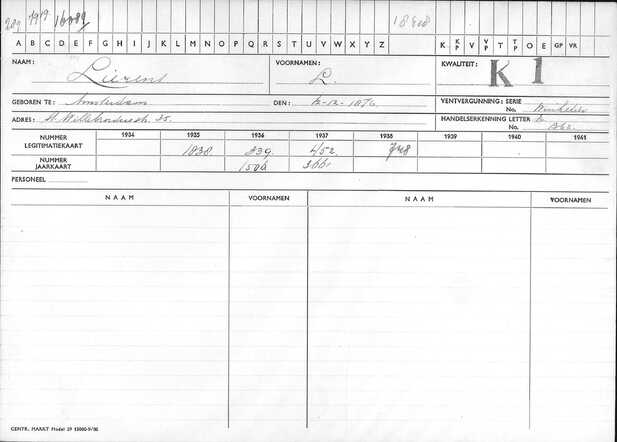 289 1919 18808
A B C D E F G H I J K L M N O P Q R S T U V W X Y Z K KP V VP T TP O E GP VR
NAAM: Lierens VOORNAMEN: L. KWALITEIT: K 1
GEBOREN TE: Amsterdam DEN: VENTVERGUNNING: SERIE
No. Winkelier
ADRES: St. Willibrordusstr. 35. HANDELSERKENNING LETTER
No.
NUMMER LEGITIMATIEKAART 1934 1935 1936 1937 1938 1939 1940 1941
1838 839 452
NUMMER JAARKAART 1506 366
PERSONEEL
NAAM VOORNAMEN NAAM VOORNAMEN
CENTR. MARKT Model 29 15000-9/'35